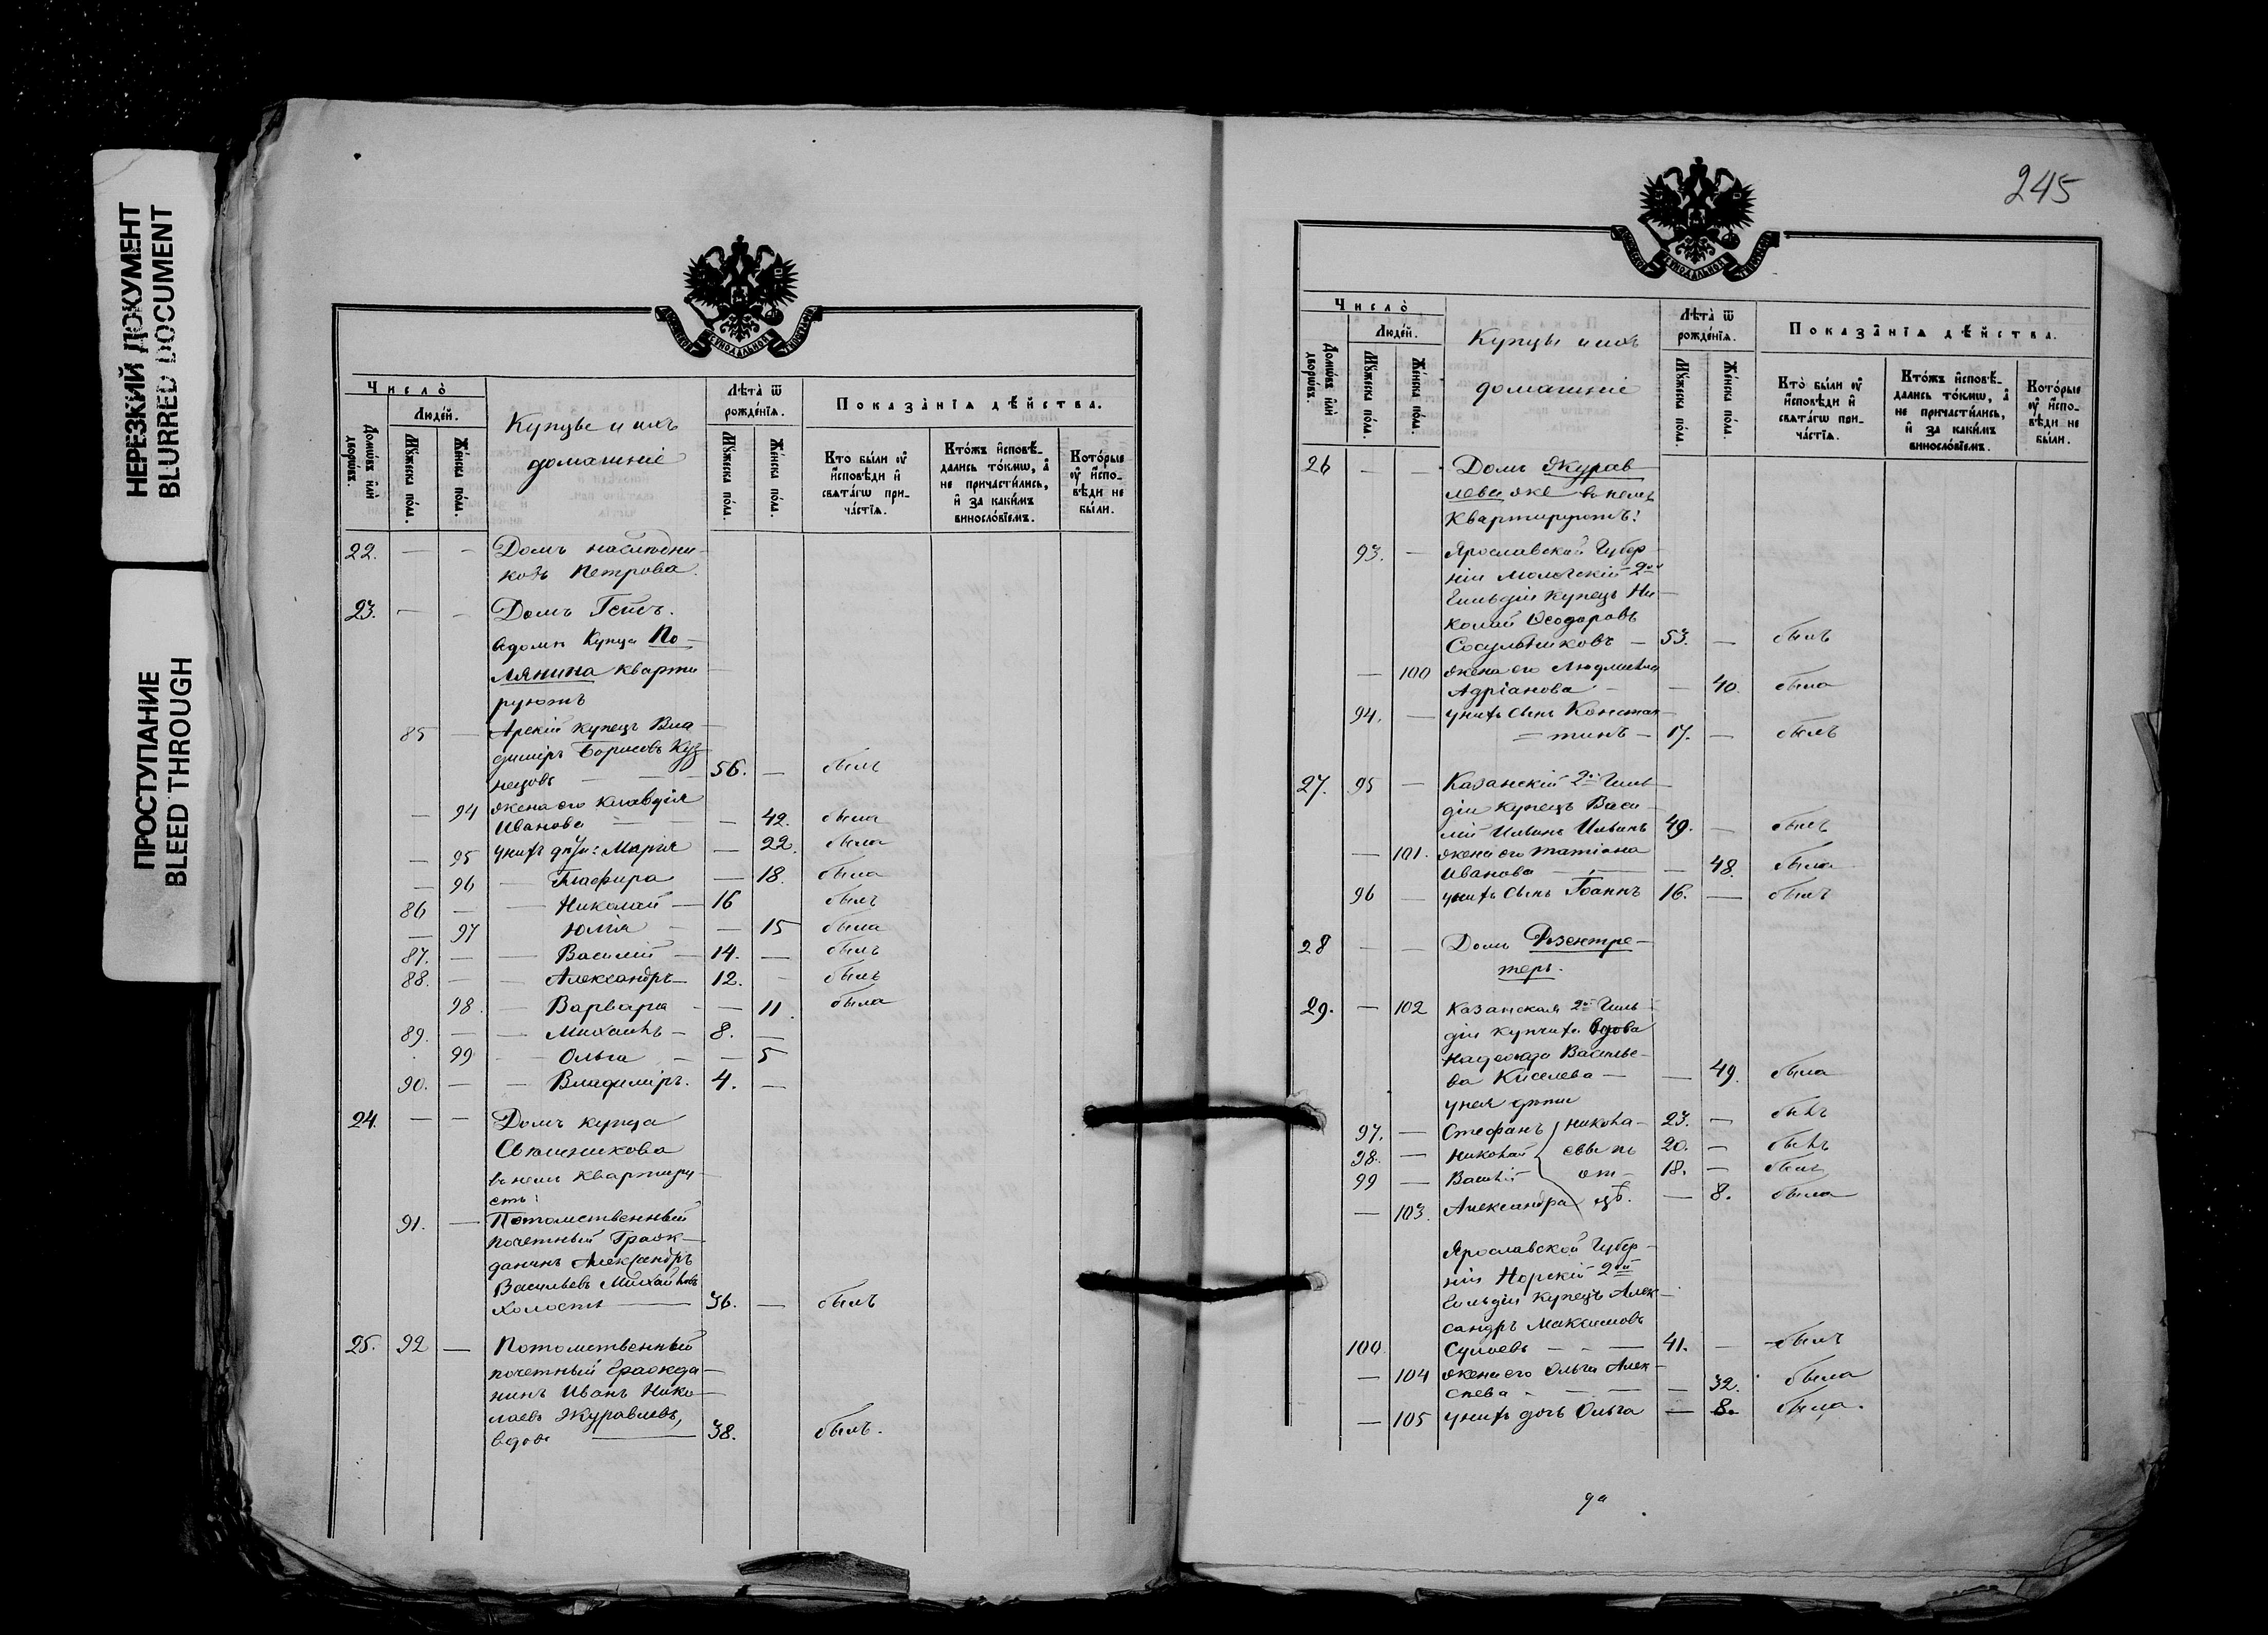 НЕРЕЗКИЙ ДОКУМЕНТ
BLURRED DOCUMENT
ПРОСТУПАНИЕ
BLEED THROUGH
Число̀
Людей.
Домѡвъ илѝ дворѡвъ.
Мꙋжеска пола.
Женска пола.
Купцы и ихъ
домашніе
Лѣта̀ ѿ
рожденїѧ.
Мꙋжеска пола.
Женска пола.
Показа̀нїѧ дѣйства.
Кто̀ были ᲂу҆
и҆сповѣди и҆
свѧтагѡ при-
частїѧ.
Кто́жъ и҆сповѣ-
дались то́кмѡ, а҆
не причасти́лись,
и҆ за каки́мъ
винослові́емъ.
Кото́рые
ᲂу҆ и҆спо-
вѣди не
были.
22. — — Домъ наслѣдни-
ковъ Петрова.
23. — — Домъ Гейсъ.
Вдомѣ Купца По-
лянина кварти-
руютъ
85 — Арскій купецъ Вла-
диміръ Борисовъ Куз-
нецовъ — 56. — былъ
— 94 жена его Клавдія
Иванова — — 42. была
— 95 у нихъ дѣти: Марія — 22. была
— 96 — Глафира — 18. была
86 — — Николай — 16 былъ
— 97 Юлія — — 15 была
87. — — Василій — 14. — былъ
88. — — Александръ — 12. — былъ
98. — Варвара — — 11. была
89. — — Михаилъ — 8. —
99 — Ольга — — 5
90. — — Владиміръ. 4. —
24. — — Домъ купца
Свѣшникова
въ немъ квартиру-
етъ:
91. — Потомственный
почетный Граж-
данинъ Александръ
Васильевъ Михайловъ
холостъ — 36. — былъ
25. 92 — Потомственный
почетный Гражда-
нинъ Иванъ Нико-
лаевъ Журавлевъ,
вдовъ — 38. былъ.
245
Число̀
Людей.
Домѡвъ илѝ дворѡвъ.
Мꙋжеска пола.
Женска пола.
Купцы и ихъ
домашніе
Лѣта̀ ѿ
рожденїѧ.
Мꙋжеска пола.
Женска пола.
Показа̀нїѧ дѣйства.
Кто̀ были ᲂу҆
и҆сповѣди и҆
свѧтагѡ при-
частїѧ.
Кто́жъ и҆сповѣ-
дались то́кмѡ, а҆
не причасти́лись,
и҆ за каки́мъ
винослові́емъ.
Кото́рые
ᲂу҆ и҆спо-
вѣди не
были.
26 — — Домъ Журав-
лева же въ немъ
Квартируютъ:
93. — Ярославской Губер-
ніи Мологскій 2ой
Гильдіи Купецъ Ни-
колай Ѳеодоровъ
Сосульниковъ — 53. — былъ
— 100 жена его Людмила
Адріанова — — 40. была
94. — у нихъ сынъ Констан-
= тинъ — 17. — былъ
27. 95 — Казанскій 2й Гиль-
діи купецъ Васи-
лій Ильинъ Ильинъ 49. — былъ
— 101. жена его Татіана
Иванова — — 48. была
96 — у нихъ сынъ Іоаннъ 16. — былъ
28 — — Домъ Розентре-
теръ.
29. — 102 Казанская 2й Гиль-
діи купчиха вдова
Надежда Василье-
ва Киселева — — 49. была
у нея дѣти
97. — Стефанъ Никола- 23. — былъ
98. — Николай евы въ 20. — былъ
99 — Василій от- 18. — былъ
— 103. Александра цѣ. — 8. была
Ярославской Губер-
ніи Норскій 2ой
Гильдіи Купецъ Алек-
сандръ Максимовъ
100 Сулоевъ — — 41. — былъ
— 104 жена его Ольга Алек-
сѣева — — 32. была
— 105 у нихъ дочь Ольга — 8. была.